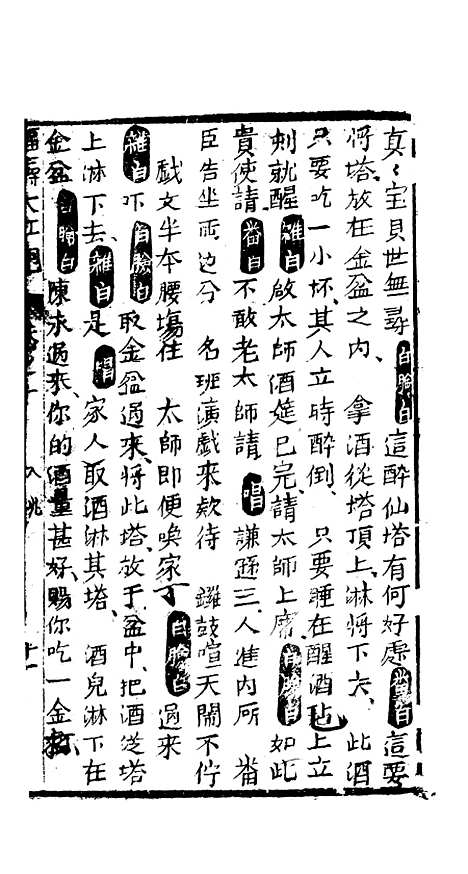 真〻宝貝世無尋 白臉白 這醉仙塔有何好處 畨白 這要
将塔放在金盆之内 拿酒從塔頂上淋將下去 此酒
只要吃一小杯其人立時醉倒 只要睡在醒酒毡上立
刻就醒 雜白 啟太師酒筵已完請太師上席 白臉白 如此
貴使請 畨白 不敢老太師請 唱 謙遜三人進内所 畨
臣告坐両边分 名班演戲來欵待 鑼鼓喧天鬧不佇
戲文半本腰塲住 太師即便喚家丁 白臉白 過來
雜白 吓 白臉白 取金盆過來将此塔放于盆中把酒從塔
上淋下去 雜白 是 唱 家人取酒淋其塔 酒兒淋下在
金盆 白臉白 陳求過來你的酒量甚好賜你吃一金
大紅 十一